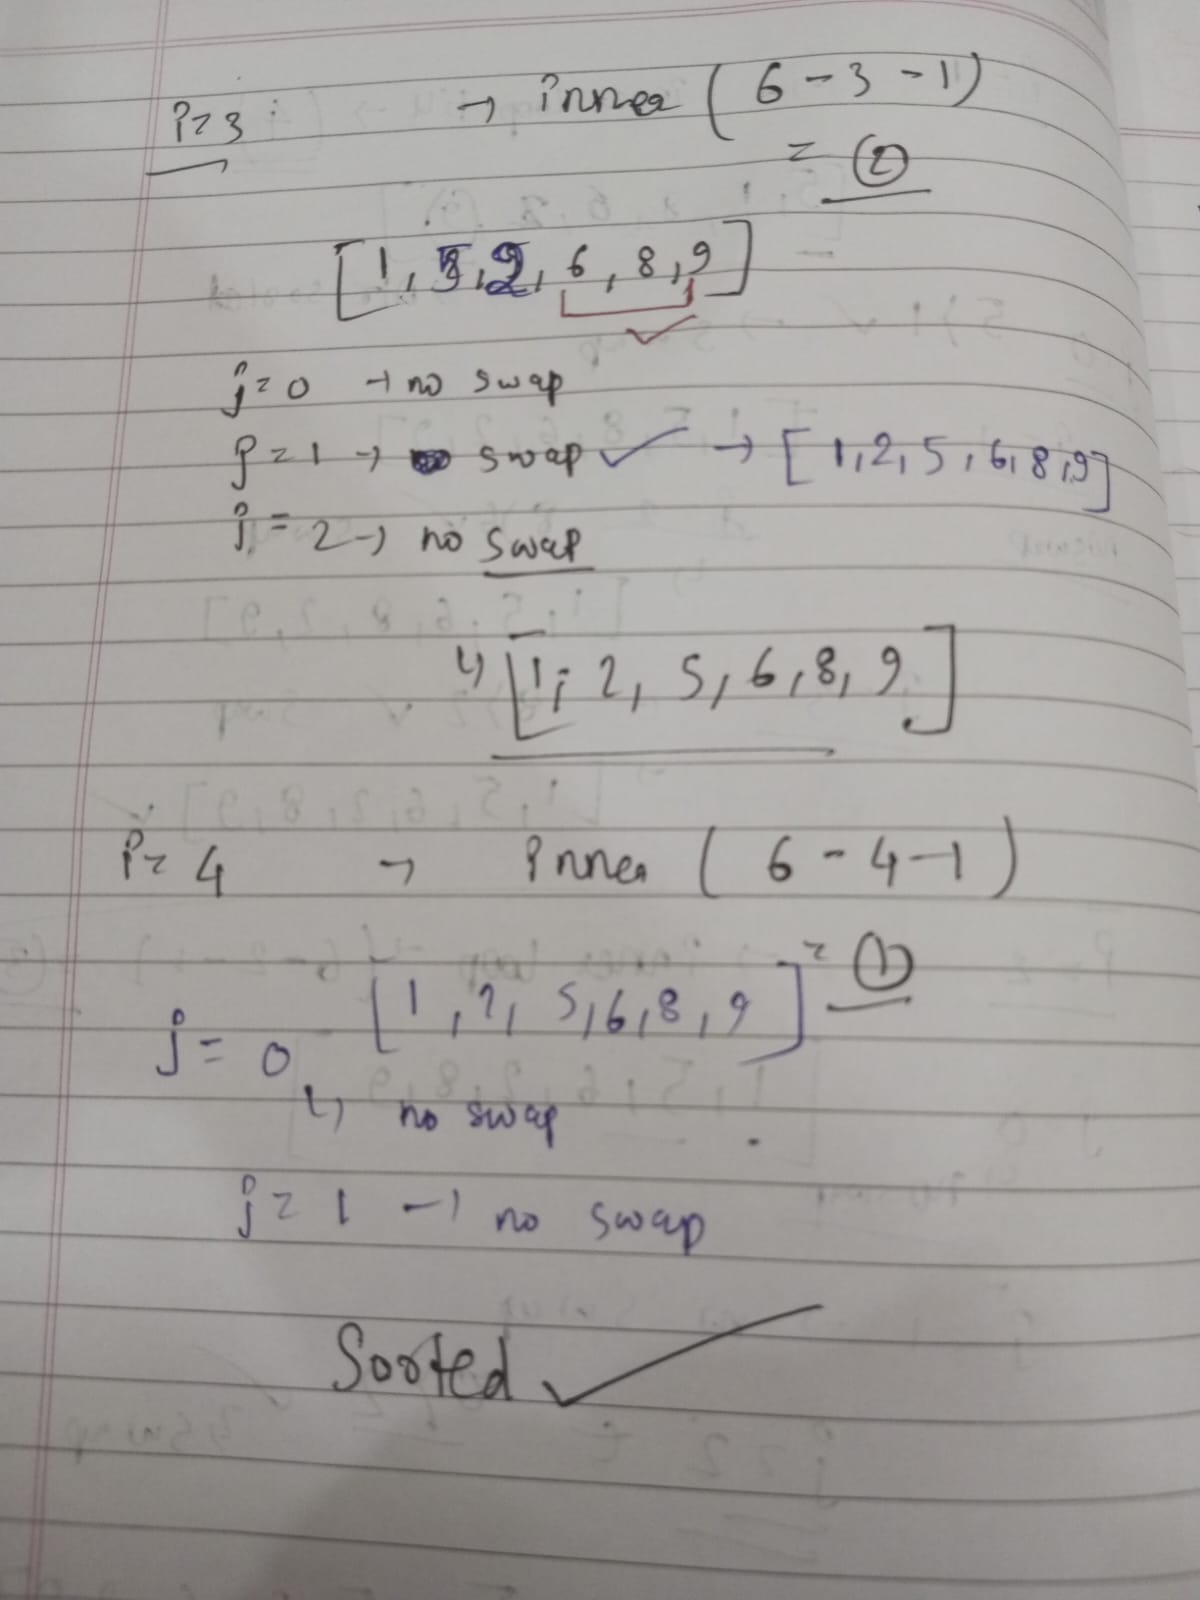 i=3 → inner (6-3-1)
= 2
[1, 5, 2, 6, 8, 9]
j=0 → no swap
j=1 → swap ✓ → [1,2,5,6,8,9]
j=2 → no swap
↳ [1, 2, 5, 6, 8, 9]
i=4 → inner (6-4-1)
= 1
[1, 2, 5, 6, 8, 9]
j=0
↳ no swap
j=1 → no swap
Sorted ✓